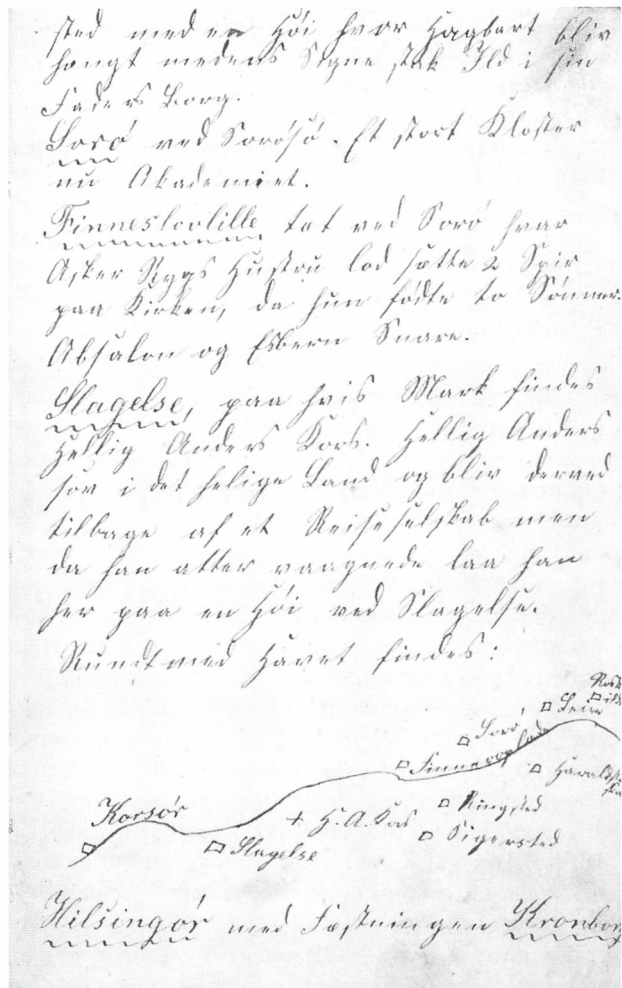 sted med en Høi hvor Hagbart bliv
hængt medens Signe stak Ild i sin
Faders Borg.
Sorø ved Sorøsø. Et stort Kloster
nu Akademiet.
Finneslovlille tæt ved Sorø hvor
Asker Rygs Hustru lod sætte 2 Spir
paa Kirken, da hun fødte to Sønner.
Absalon og Esbern Snare.
Slagelse, paa hvis Mark findes
Hellig Anders Kors. Hellig Anders
sov i det helige Land og bliv derved
tilbage af et Reiseselskab men
da han atter vaagnede laa han
her paa en Høi ved Slagelse.
Rundt med Havet findes:
Leire
Sorø
Haralds
Ringsted
Korsør
H. A. Kors
Sigersted
Slagelse
Hilsingør med Fæstningen Kronbor